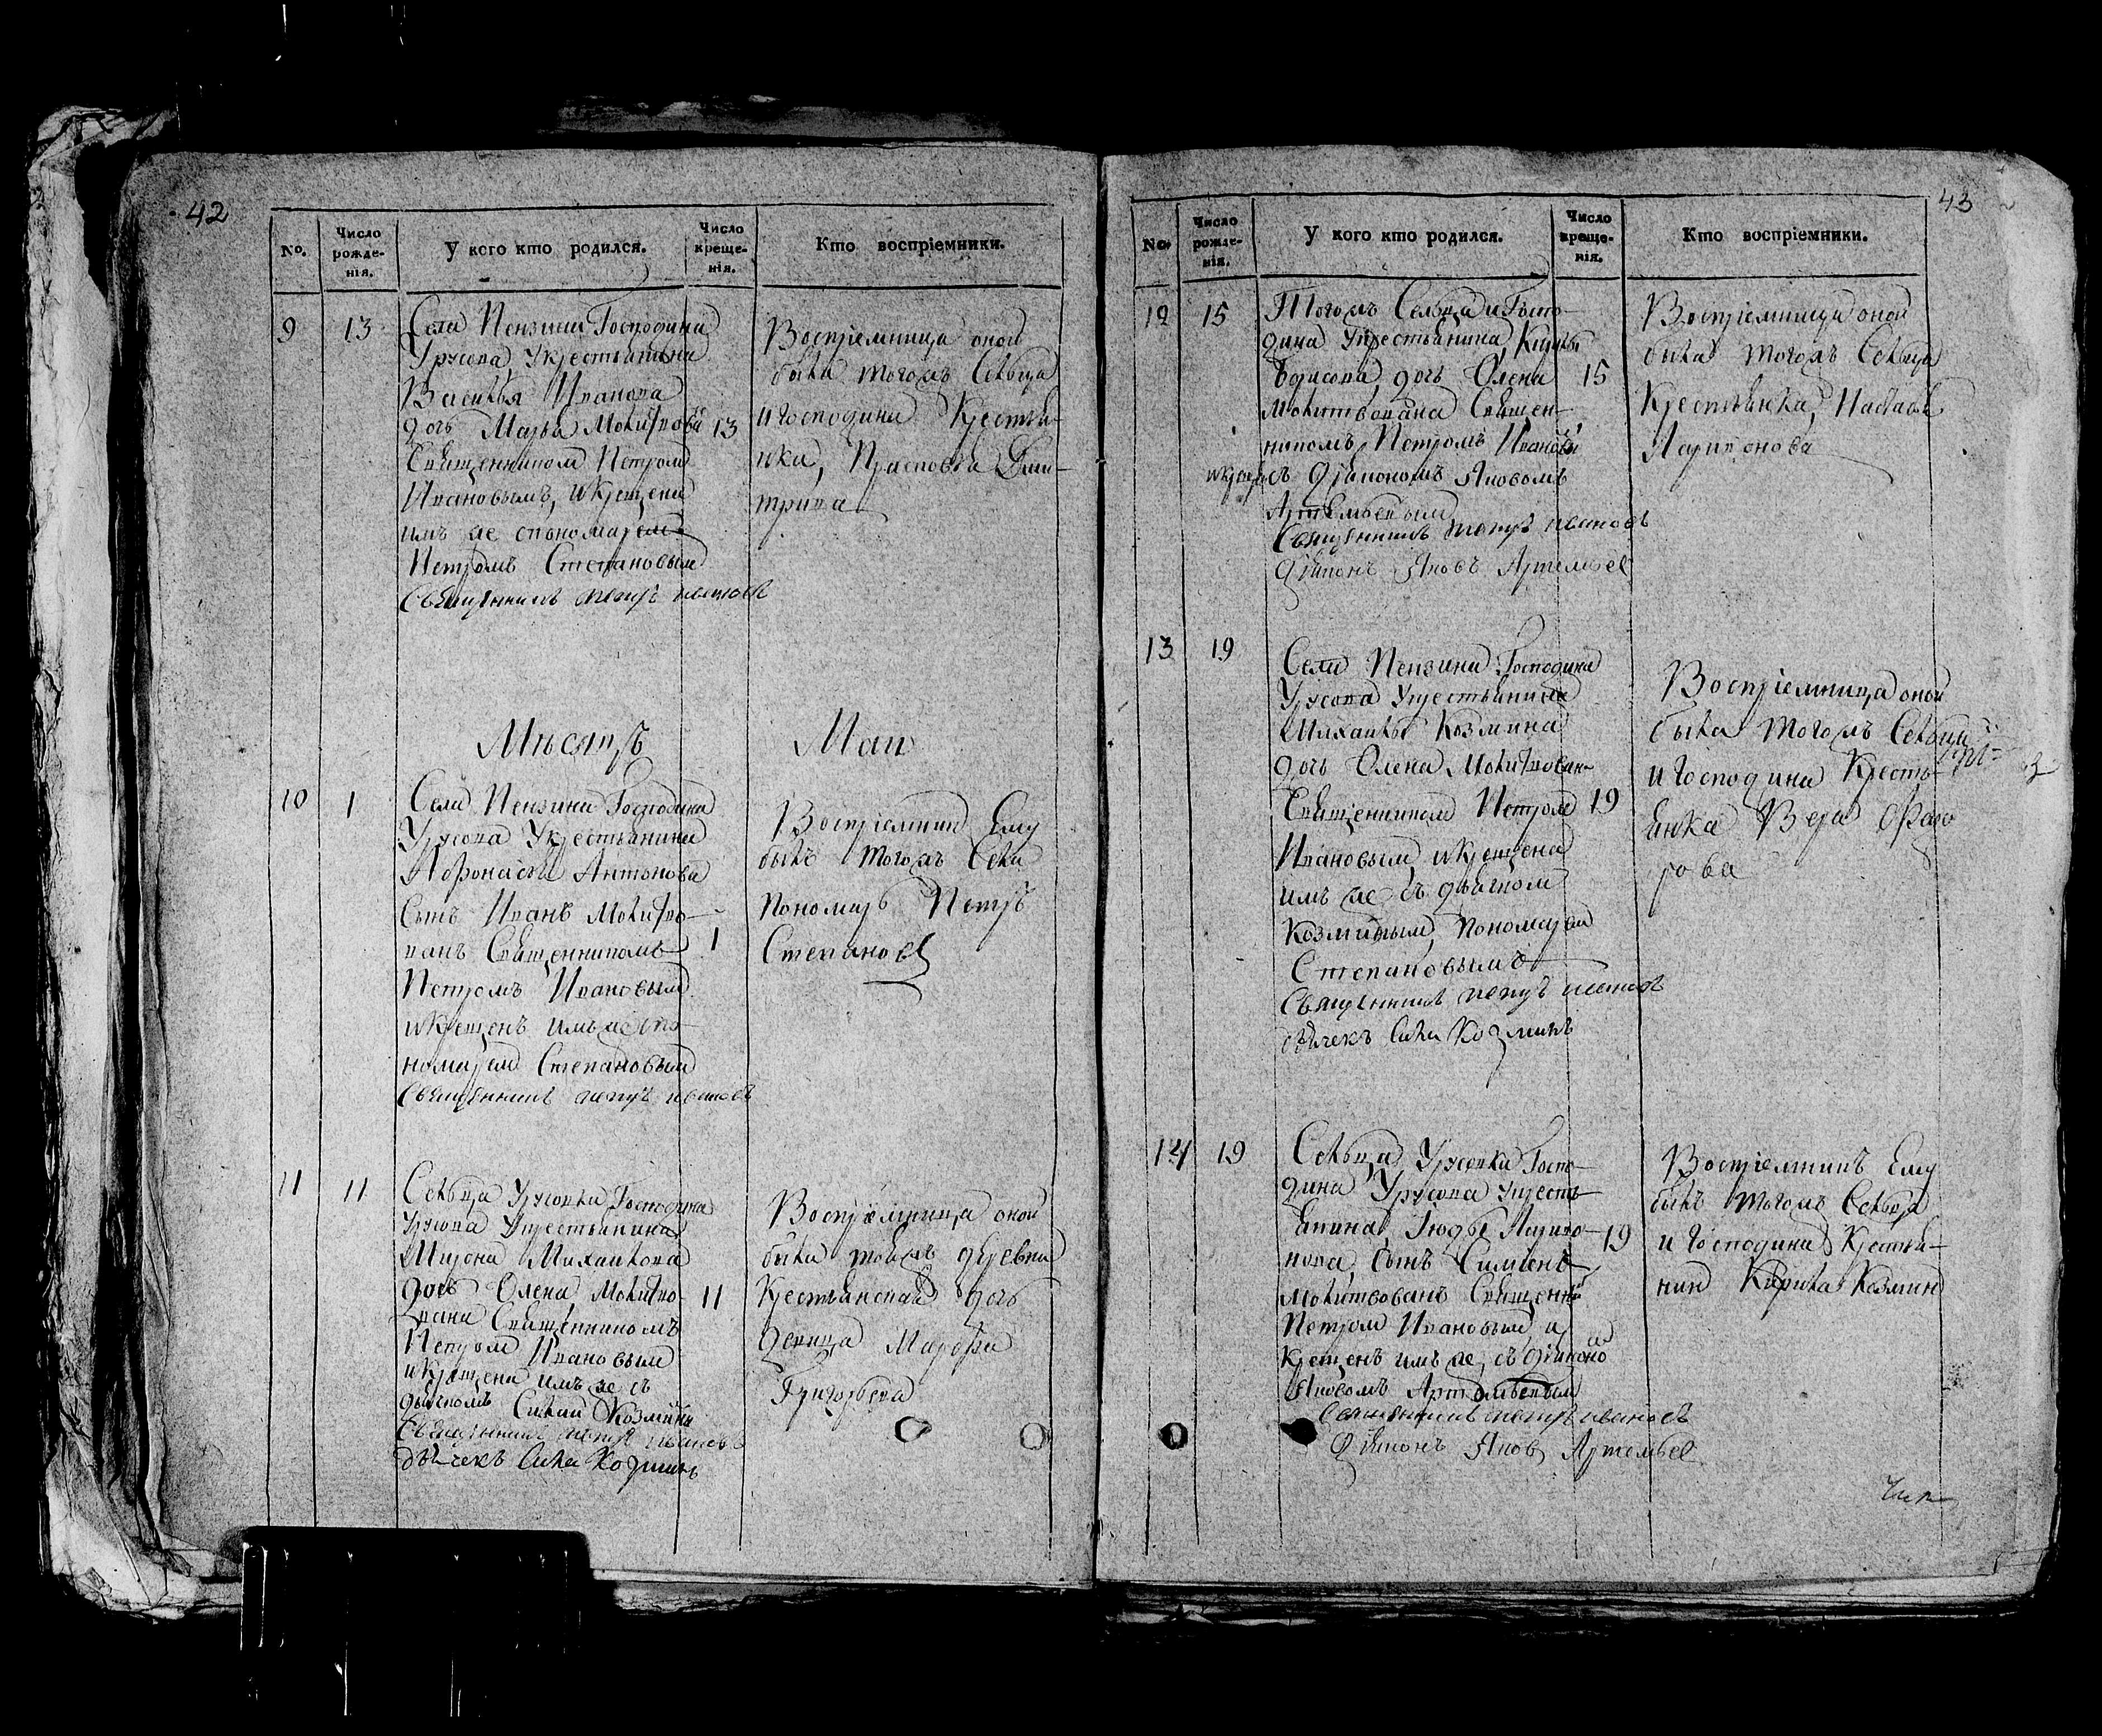 42
No.
Число рожде- нія.
У кого кто родился.
Число креще- нія.
Кто воспріемники.
9 13
Села Пензина Господина
Урусова, Укрестьянина
Василья Иванова
дочь Марья Молитвова
13
Священникомъ Петромъ
Ивановымъ, икрещена
имъ же спономаремъ
Петромъ Степановымъ
Священникъ петръ ивановъ
Воспріемница оной
была тогожъ Сельца
игосподина Крестья-
нка, Прасковья Дми-
трива
Мѣсяцъ Маи
10 1
Села Пензина Господина
Урусова Укрестьянина
Афонасья Антонова
Сынъ Иванъ Молитво-
ванъ Священникомъ 1
Петромъ Ивановым
икрещенъ имъже спо-
номарем Степановым
Священникъ петръ ивановъ
Воспріемник Ему
былъ тогожъ Села
пономарь Петръ
Степановъ
11 11
Сельца Урусовки Господина
Урусова Укрестьянина
Мирона Михаилова
дочь Олена Молитво- 11
вана Священникомъ
Петром Ивановым
икрещена имъ же съ
дьячкомъ Силай Козминым
Священникъ петръ ивановъ
дьячекъ Сила Козминъ
Воспріемница оной
была тойжъ деревни
Крестьянская дочь
девица Марфа
Григорьева
43
No.
Число рожде- нія.
У кого кто родился.
Число креще- нія.
Кто воспріемники.
12 15
Тогожъ Сельца и Госпо-
дина Укрестьянина,
Борисова, дочь Олена 15
Молитвована Священ-
никомъ Петромъ Ивановым
икрещена съ діакономъ Яковомъ
Артемьевым
Священникъ петръ ивановъ
Діаконъ Яковъ Артемьев
Воспріемница оной
была тогожъ Сельца
Крестьянка, Настасья
Ларионова
13 19
Села Пензина Господина
Урусова Укрестьянина
Михаилы Козмина
дочь Олена Молитвован-
Священником Петром 19
Ивановым, икрещена
имъ же съ дьячком
Козминым, пономарем
Степановымъ
Священникъ петръ ивановъ
дьячекъ Сила Козминъ
Воспріемница оной
была тогожъ Сельца
и Господина Кресть-
янка Вера Фаго
рова
14 19
Сельца Урусовки Госпо-
дина Урусова Укресть
янина,
нова, Сынъ Симіонъ 19
Молитвованъ Священни
Петром Ивановым, и
Крещенъ имъ же, съ діакономъ
Яковомъ Артемьевым
Священникъ петръ ивановъ
Діаконъ Яковъ Артемьев
Воспріемникъ Ему
былъ тогожъ Сельца
и Господина Крестья-
нин Козмин